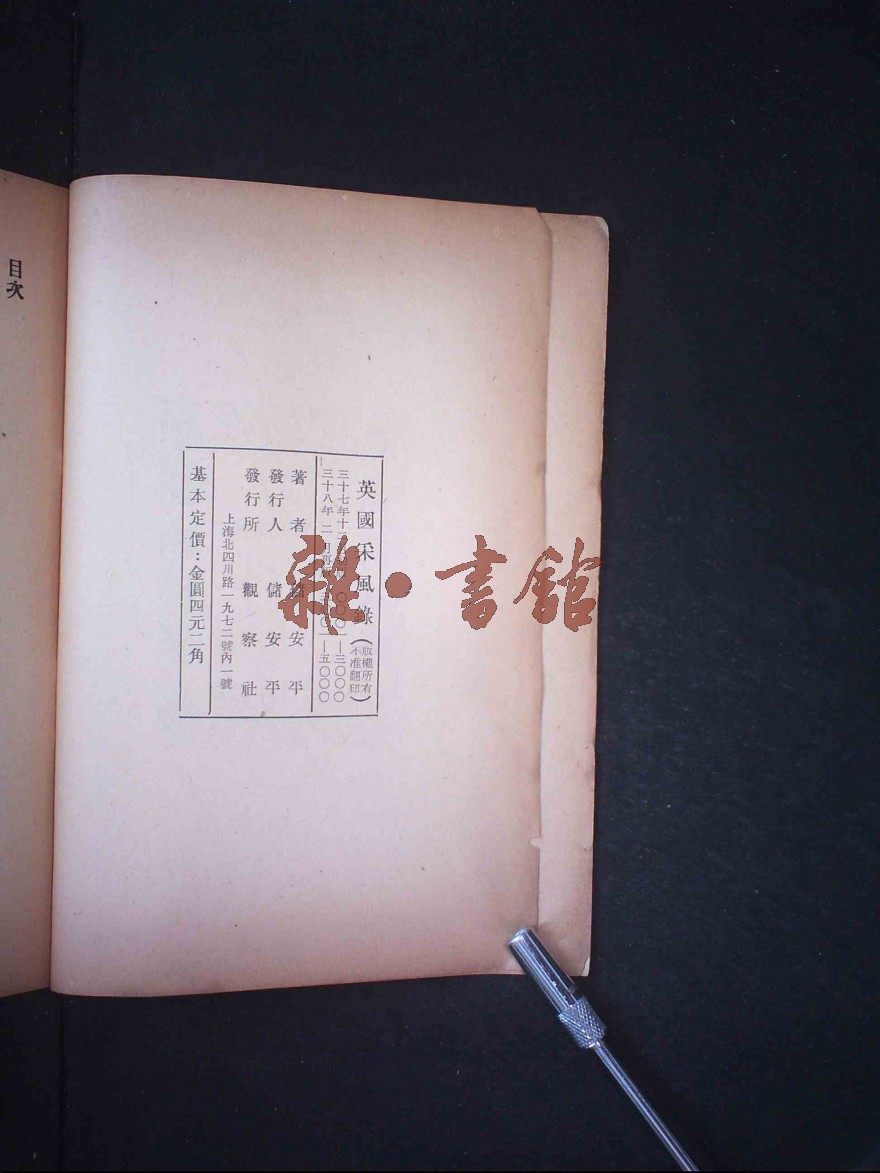 英國采風錄(版權所有不准翻印)
三十七年十二 〇〇〇一—三〇〇〇
三十八年 二 月再 〇一—五〇〇〇
著者 儲安平
發行人 儲安平
發行所 觀察社
上海北四川路一九七二號內一號
基本定價：金圓四元二角
目次
雜·書館